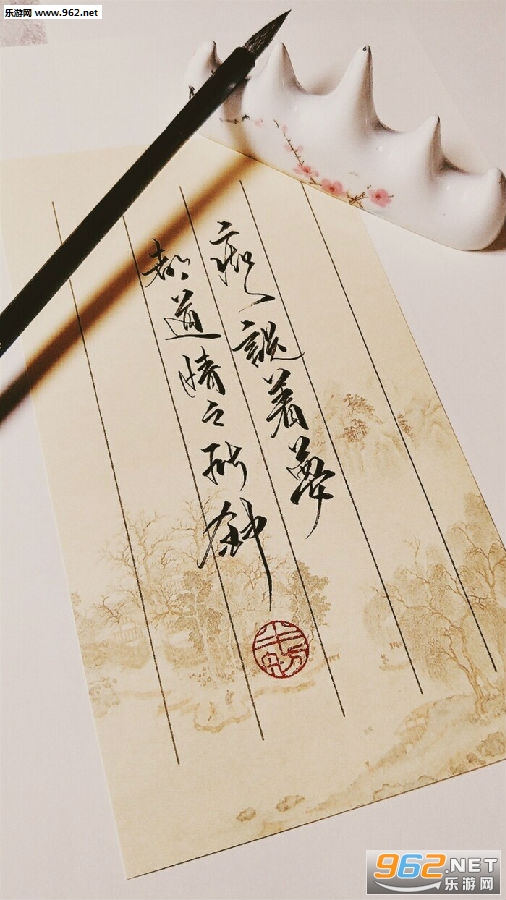 乐游网 www.962.net
痴人說着夢
都道情之所钟
962.NET
乐游网